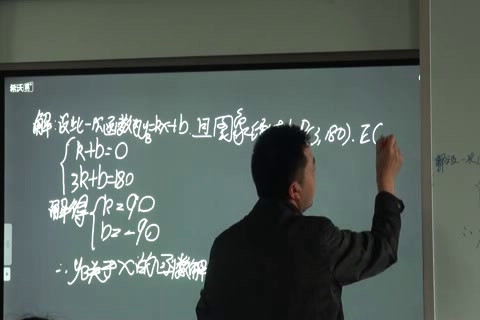 希沃
解:设此一次函数为y=kx+b,且图象 (3,180).E(
k+b=0
3k+b=180
解得 k=90
b=-90
∴ 关于x的函数解